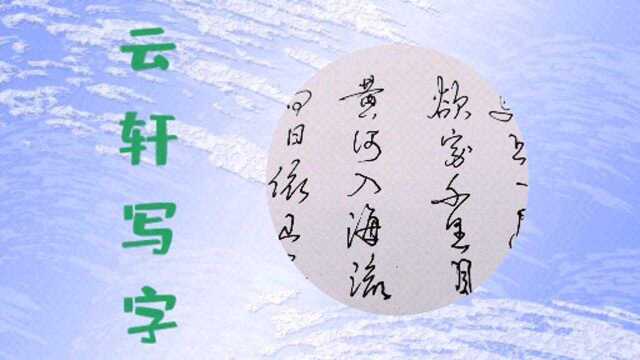 云轩写字
白日依山
黄河入海流
欲穷千里目
更上一